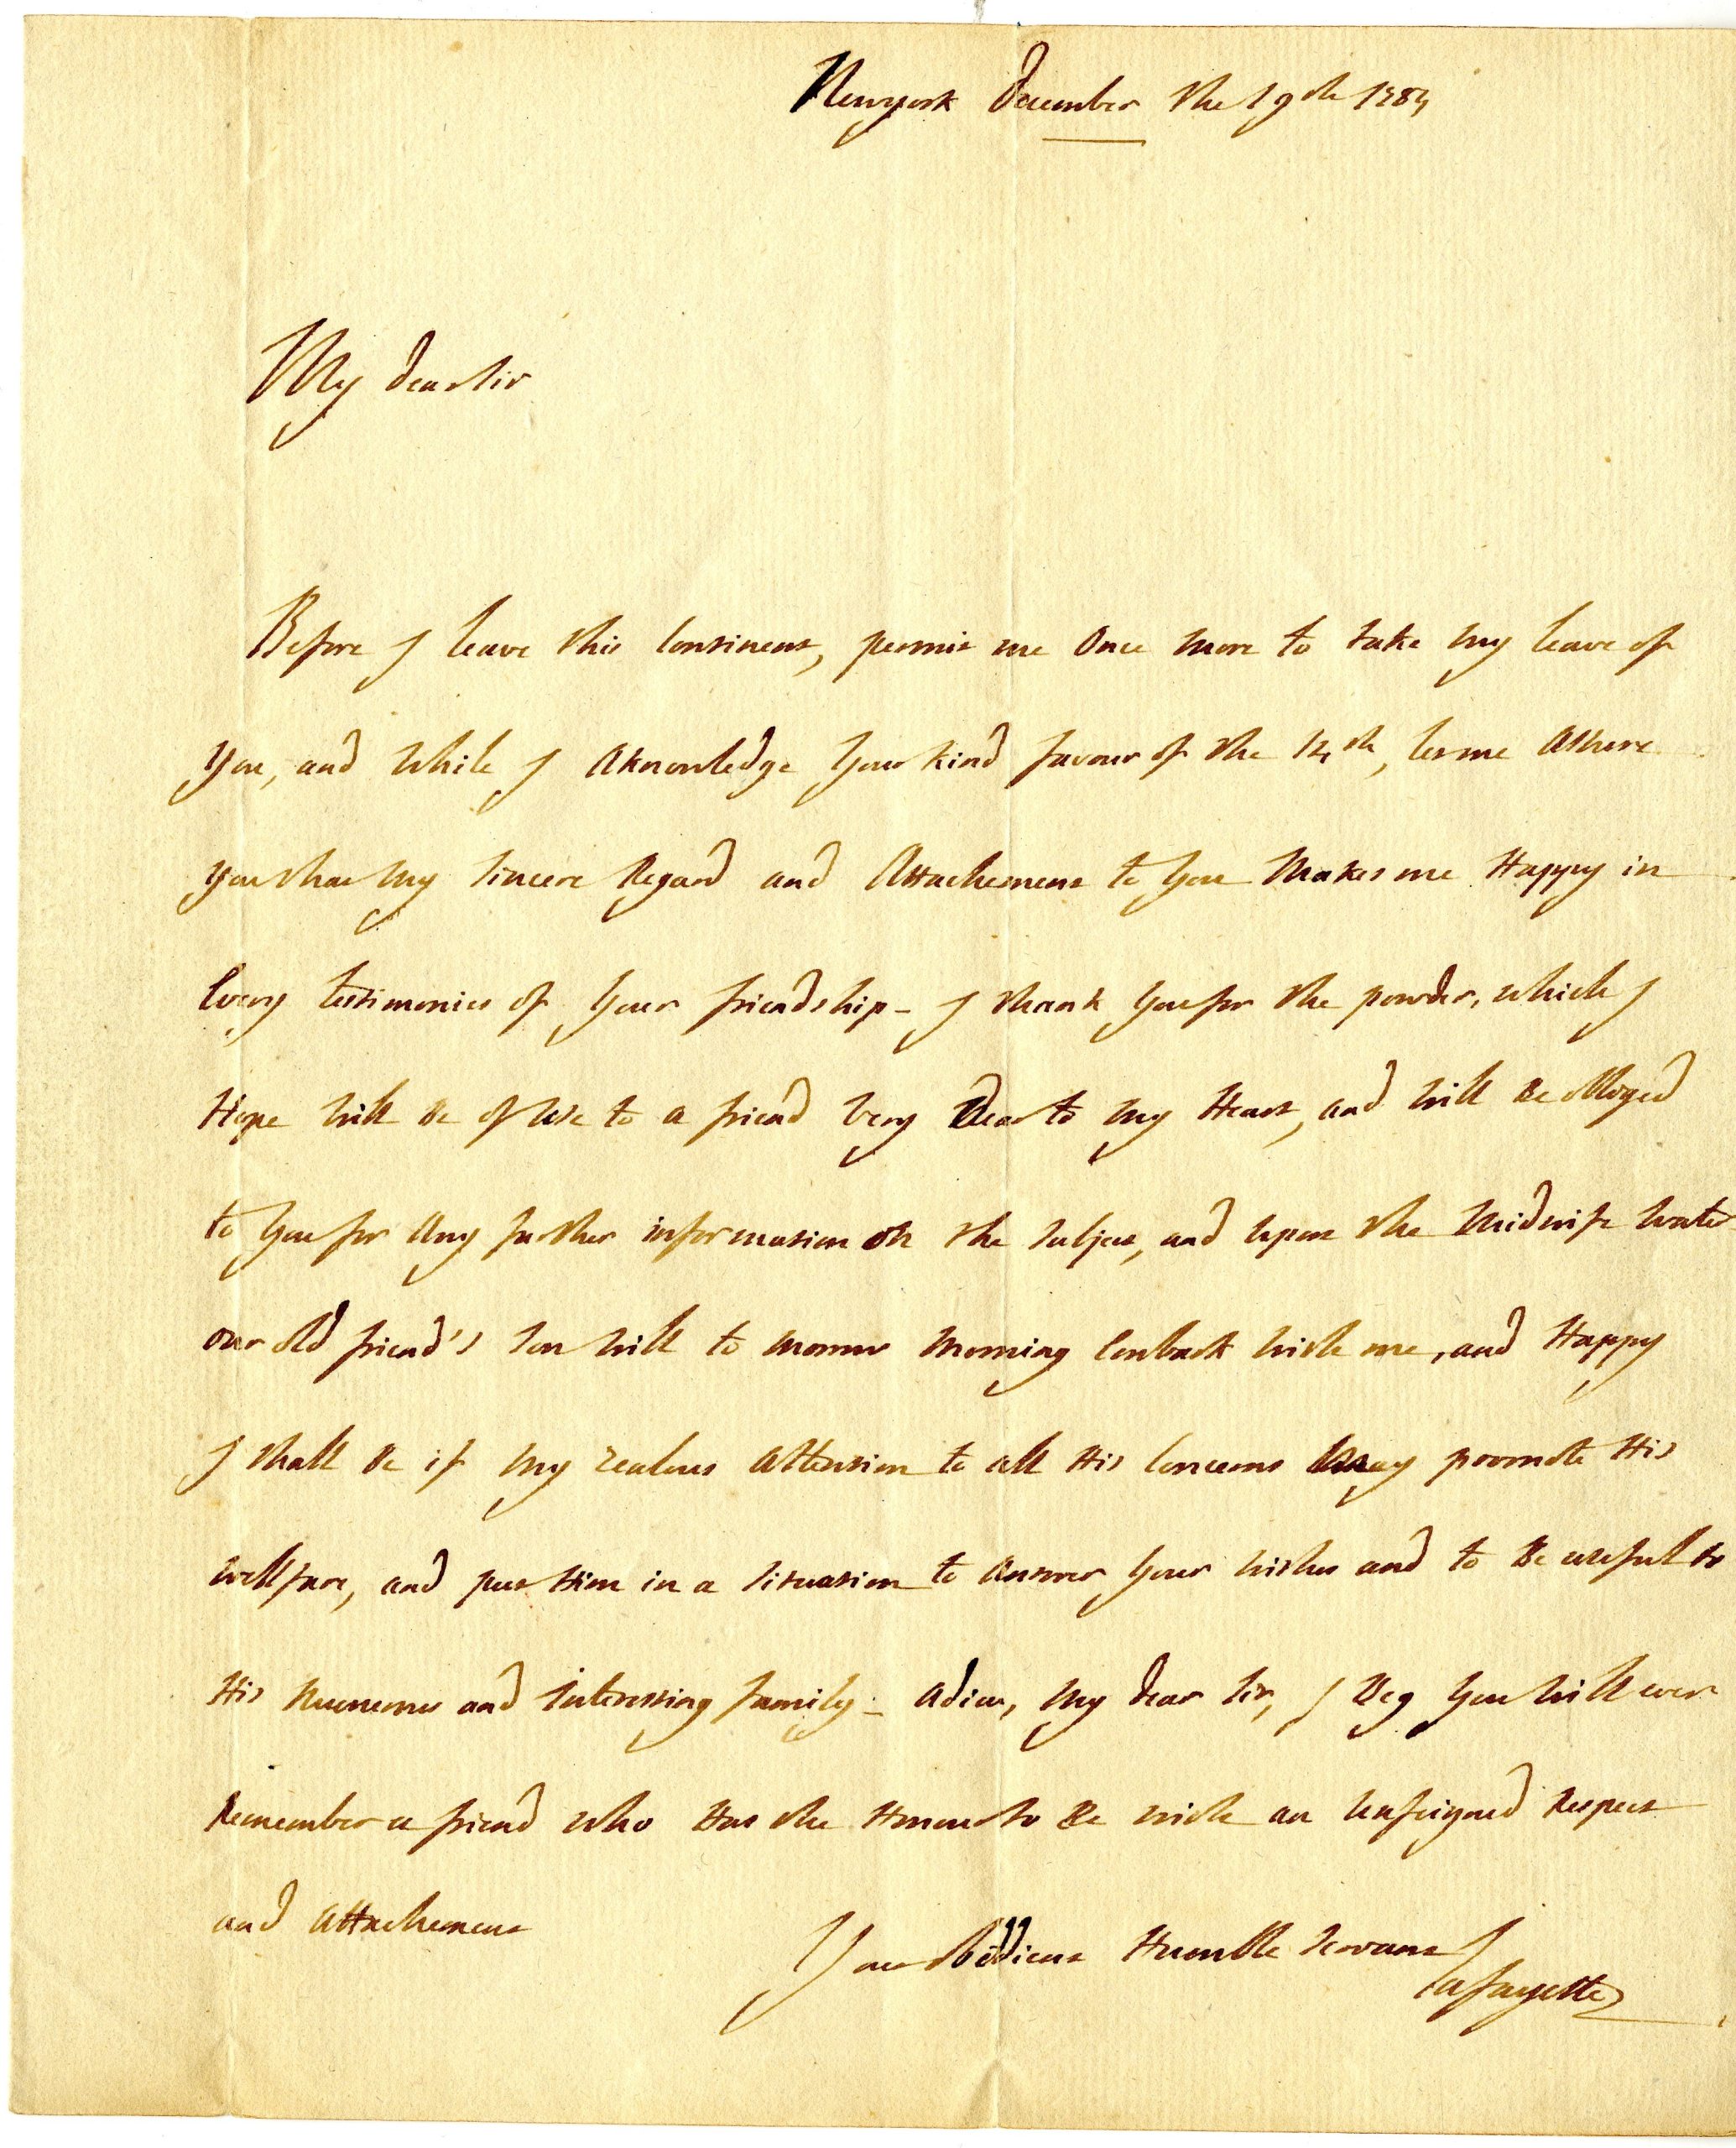 Newyork december the 19th 1784
My dear Sir
Before I leave this Continent, permit me Once more to take my leave of
You, and While I Aknowledge Your kind favour of the 14th, let me Assure
You that my Sincere Regard and Attachement to You Makes me Happy in
Every testimonies of Your friendship - I thank You for the powder, which I
Hope Will Be of Use to a friend Very dear to my Heart, and Will Be obliged
to You for Any further information on the Subject, and Upon the Midwife Water
our old friend's Son Will to morrow Morning Embark With me, and Happy
I shall Be if my zealous Attention to all His Concerns May promote His
wellfare, and put Him in a Situation to Answer Your Wishes and to Be useful to
His Numerous and interesting family - adieu, My dear Sir, I Beg You Will ever
Remember a friend who Has the Honour to Be with an Unfeigned Respect
and Attachement
Your Obedient Humble Servant
Lafayette